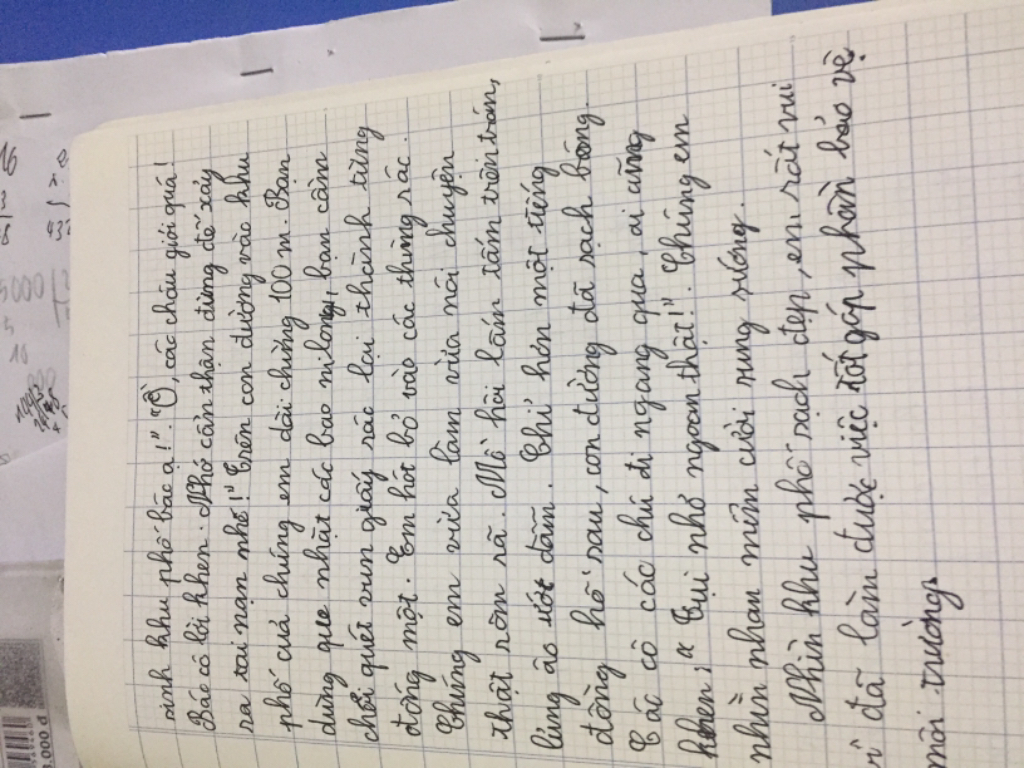 sinh khu phố bác ạ!". "Ồ, các cháu giỏi quá!
Bác có lời khen. Nhớ cẩn thận đừng để xảy
ra tai nạn nhớ!" Trên con đường vào khu
phố của chúng em dài chừng 100 m. Bạn
dùng que nhặt các bao nilong, bạn cầm
chổi quét vun giấy rác lại thành từng
đống một. Em hót bỏ vào các thùng rác.
Chúng em vừa làm vừa nói chuyện
thật rôm rả. Mồ hôi lấm tấm trên trán,
lưng áo ướt đẫm. Chỉ hơn một tiếng
đồng hồ sau, con đường đã sạch bóng.
Các cô các chú đi ngang qua, ai cũng
khen: "Tụi nhỏ ngoan thật!". Chúng em
nhìn nhau mỉm cười sung sướng.
Nhìn khu phố sạch đẹp, em rất vui
vì đã làm được việc tốt góp phần bảo vệ
môi trường.
16
3
8
432
5000
5
10
.000 đ